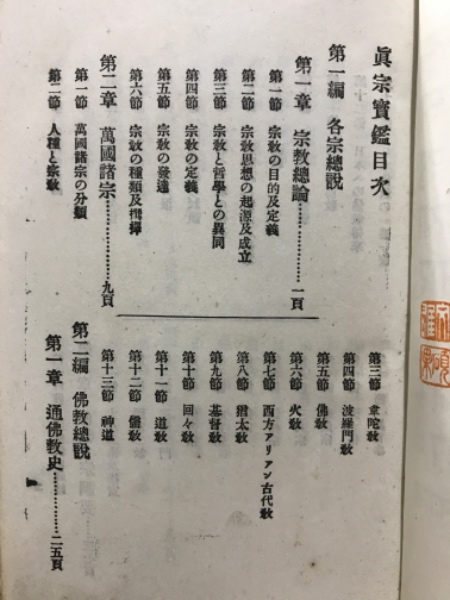 眞宗寶鑑目次
第一編　各宗總說
第一章　宗教總論…………一頁
第一節　宗敎の目的及定義
第二節　宗敎思想の起源及成立
第三節　宗敎と哲學との異同
第四節　宗敎の定義
第五節　宗敎の發達
第六節　宗敎の種類及撰擇
第二章　萬國諸宗…………九頁
第一節　萬國諸宗の分類
第二節　人種と宗敎
第三節　韋陀敎
第四節　波羅門敎
第五節　佛敎
第六節　火敎
第七節　西方アリアン古代敎
第八節　猶太敎
第九節　基督敎
第十節　回々敎
第十一節　道敎
第十二節　儒敎
第十三節　神道
第二編　佛敎總說
第一章　通佛敎史…………二五頁